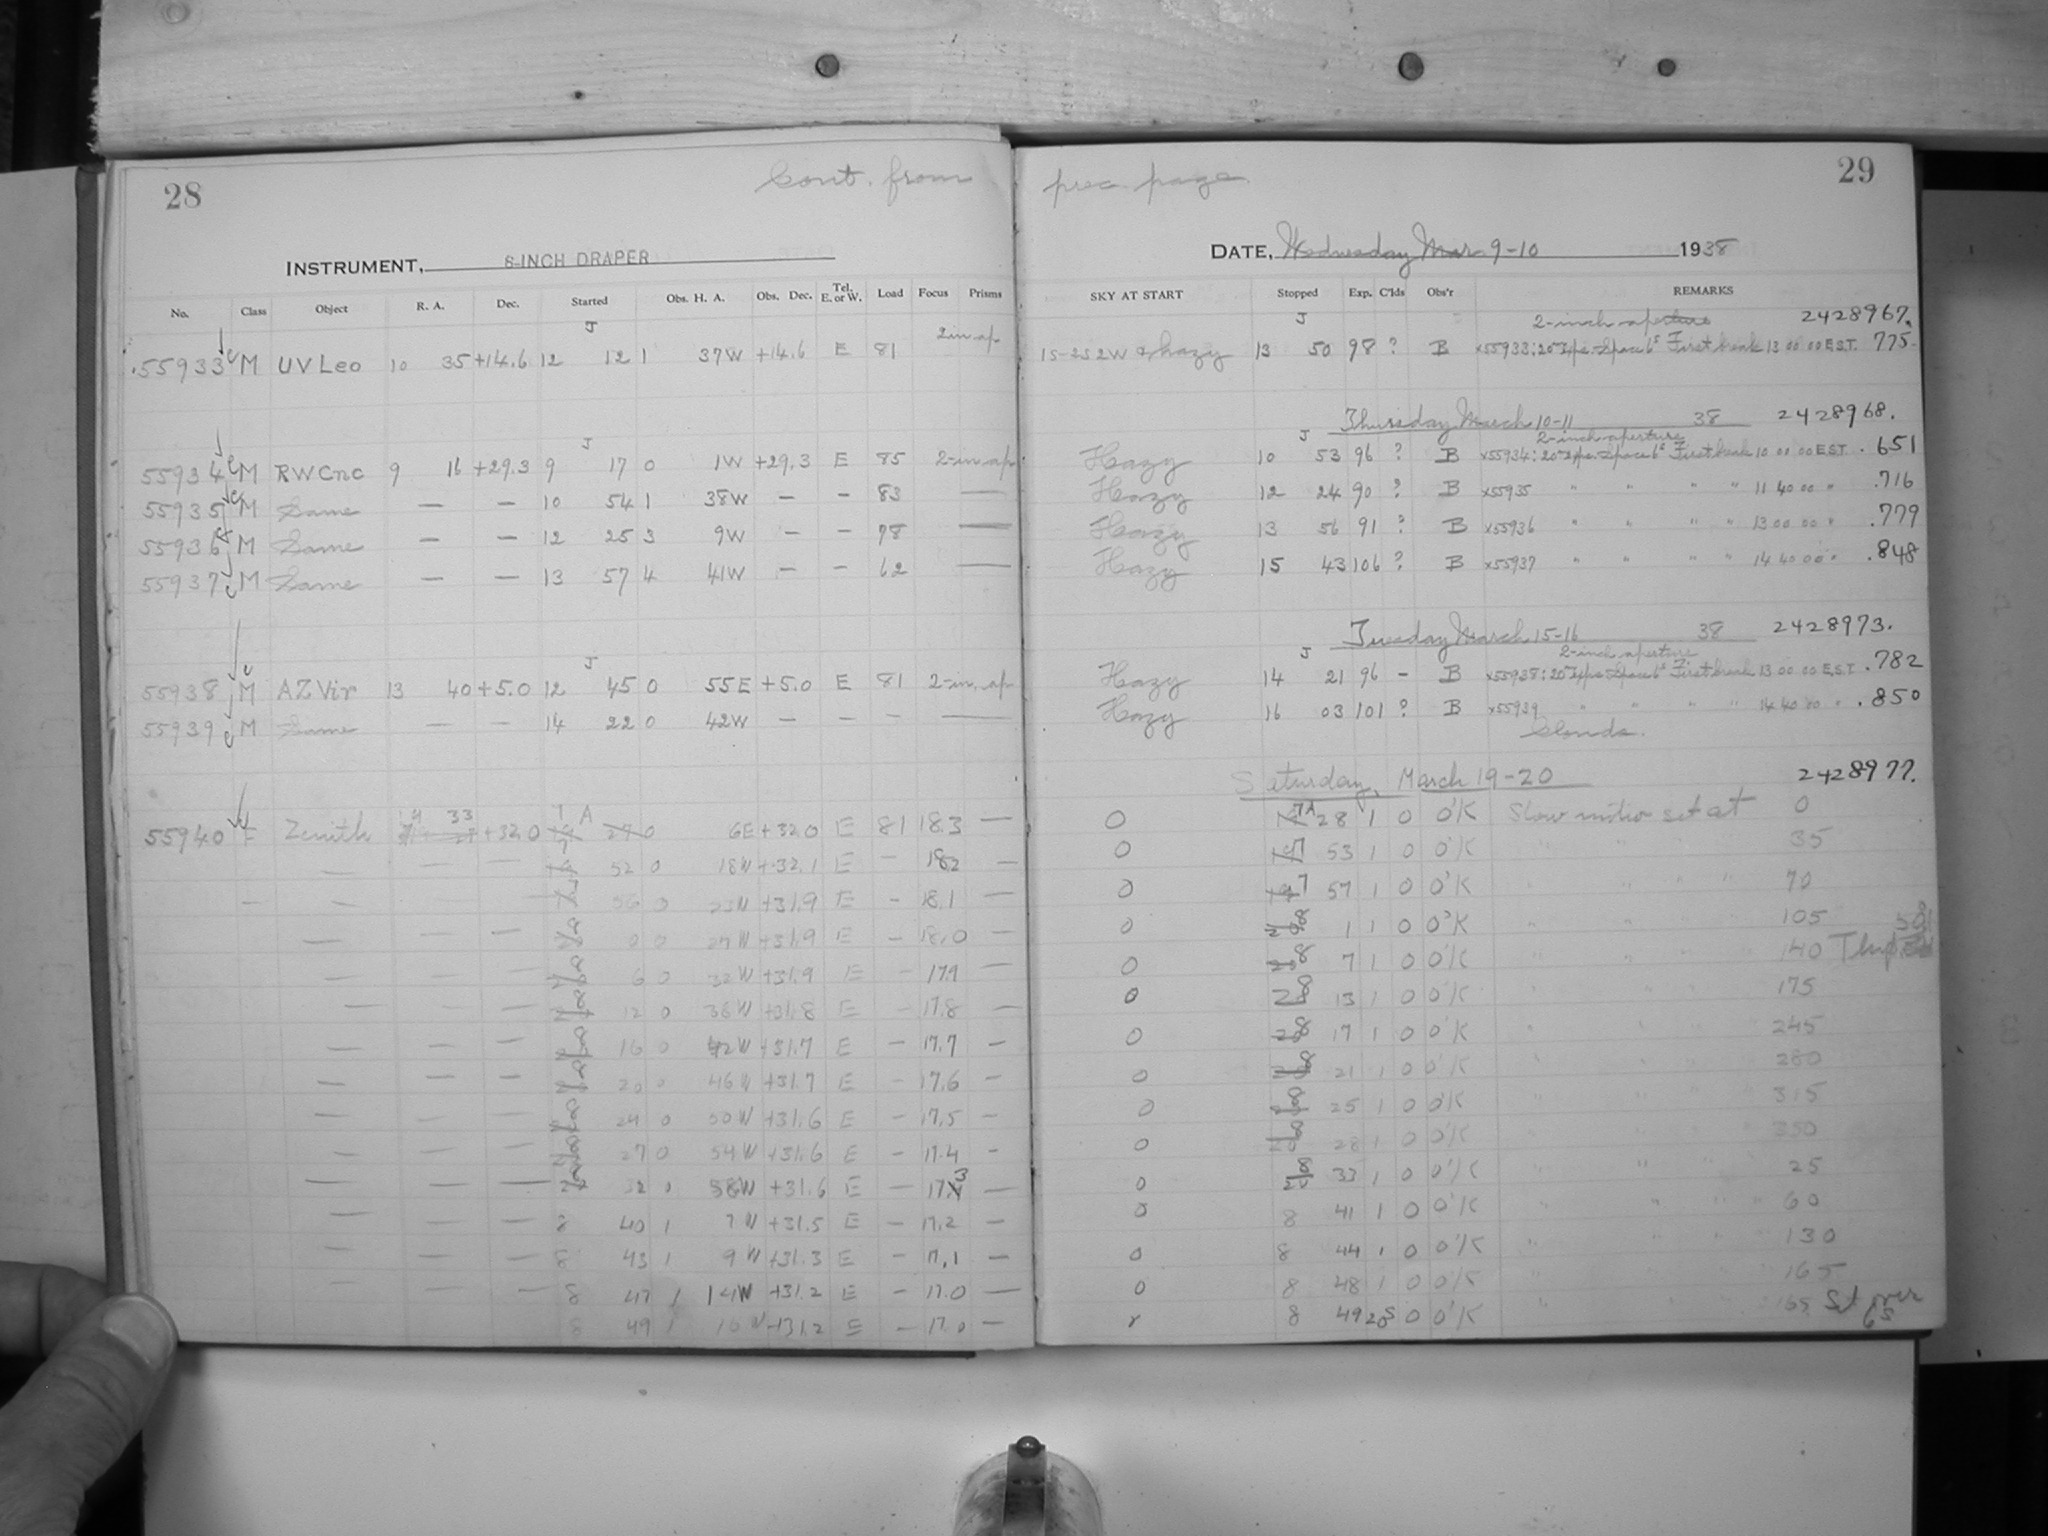 28
Cont. from
prec. page
29
INSTRUMENT, 8-INCH DRAPER
DATE, Wednesday Mar 9-10 1938
No. Class Object R. A. Dec. Started Obs. H. A. Obs. Dec. Tel. E. or W. Load Focus Prisms
SKY AT START Stopped Exp. C'lds Obs'r REMARKS
J 2in ap J 2-inch aperture 2428967.
55933 M UV Leo 10 35 +14.6 12 12 1 37W +14.6 E 81 13 50 98 ? B x55933: First break 13 00 00 EST. 775
Thursday March 10-11 38 2428968.
J J 2-inch aperture
55934 M RW Cnc 9 16 +29.3 9 17 0 1W +29.3 E 85 2-in ap Hazy 10 53 96 ? B x55934: First break 10 00 00 EST .651
55935 M Same — — 10 54 1 38W — — 83 — Hazy 12 24 90 ? B x55935 " " " " 11 40 00 " .716
55936 M Same — — 12 25 3 9W — — 78 — Hazy 13 56 91 ? B x55936 " " " " 13 00 00 " .779
55937 M Same — — 13 57 4 41W — — 62 — Hazy 15 43 106 ? B x55937 " " " " 14 40 00 " .848
Tuesday March 15-16 38 2428973.
J J 2-inch aperture
55938 M AZ Vir 13 40 +5.0 12 45 0 55E +5.0 E 81 2-in. ap Hazy 14 21 96 — B x55938: First break 13 00 00 EST .782
55939 M Same — — 14 22 0 42W — — — — Hazy 16 03 101 ? B x55939 " " " " 14 40 00 " .850
Clouds.
Saturday, March 19-20 2428977.
55940 F Zenith 33 +32.0 7 A 27 0 6E +32.0 E 81 18.3 — 0 7A 28 1 0 O'K Slow motion set at 0
— — — 7 52 0 18W +32.1 E — 18.2 — 0 7 53 1 0 O'K " " " 35
— — — 7 56 0 23W +31.9 E — 18.1 — 0 7 57 1 0 O'K " " " 70
— — — 8 0 0 27W +31.9 E — 18.0 — 0 8 1 1 0 O'K " " " 105
— — — 8 6 0 32W +31.9 E — 17.9 — 0 8 7 1 0 O'K " " " 140
— — — 8 12 0 38W +31.8 E — 17.8 — 0 8 13 1 0 O'K " " " 175
— — — 8 16 0 42W +31.7 E — 17.7 — 0 8 17 1 0 O'K " " " 245
— — — 8 20 0 46W +31.7 E — 17.6 — 0 8 21 1 0 O'K " " " 280
— — — 8 24 0 50W +31.6 E — 17.5 — 0 8 25 1 0 O'K " " " 315
— — — 8 27 0 54W +31.6 E — 17.4 — 0 8 28 1 0 O'K " " " 350
— — — 8 32 0 58W +31.6 E — 17.3 — 0 8 33 1 0 O'K " " " 25
— — — 8 40 1 7W +31.5 E — 17.2 — 0 8 41 1 0 O'K " " " 60
— — — 8 43 1 9W +31.3 E — 17.1 — 0 8 44 1 0 O'K " " " 130
— — — 8 47 1 14W +31.2 E — 17.0 — 0 8 48 1 0 O'K " " " 165
8 49 1 16W +31.2 E — 17.0 — 8 49 20s 0 O'K " " " 165 Set over
6s